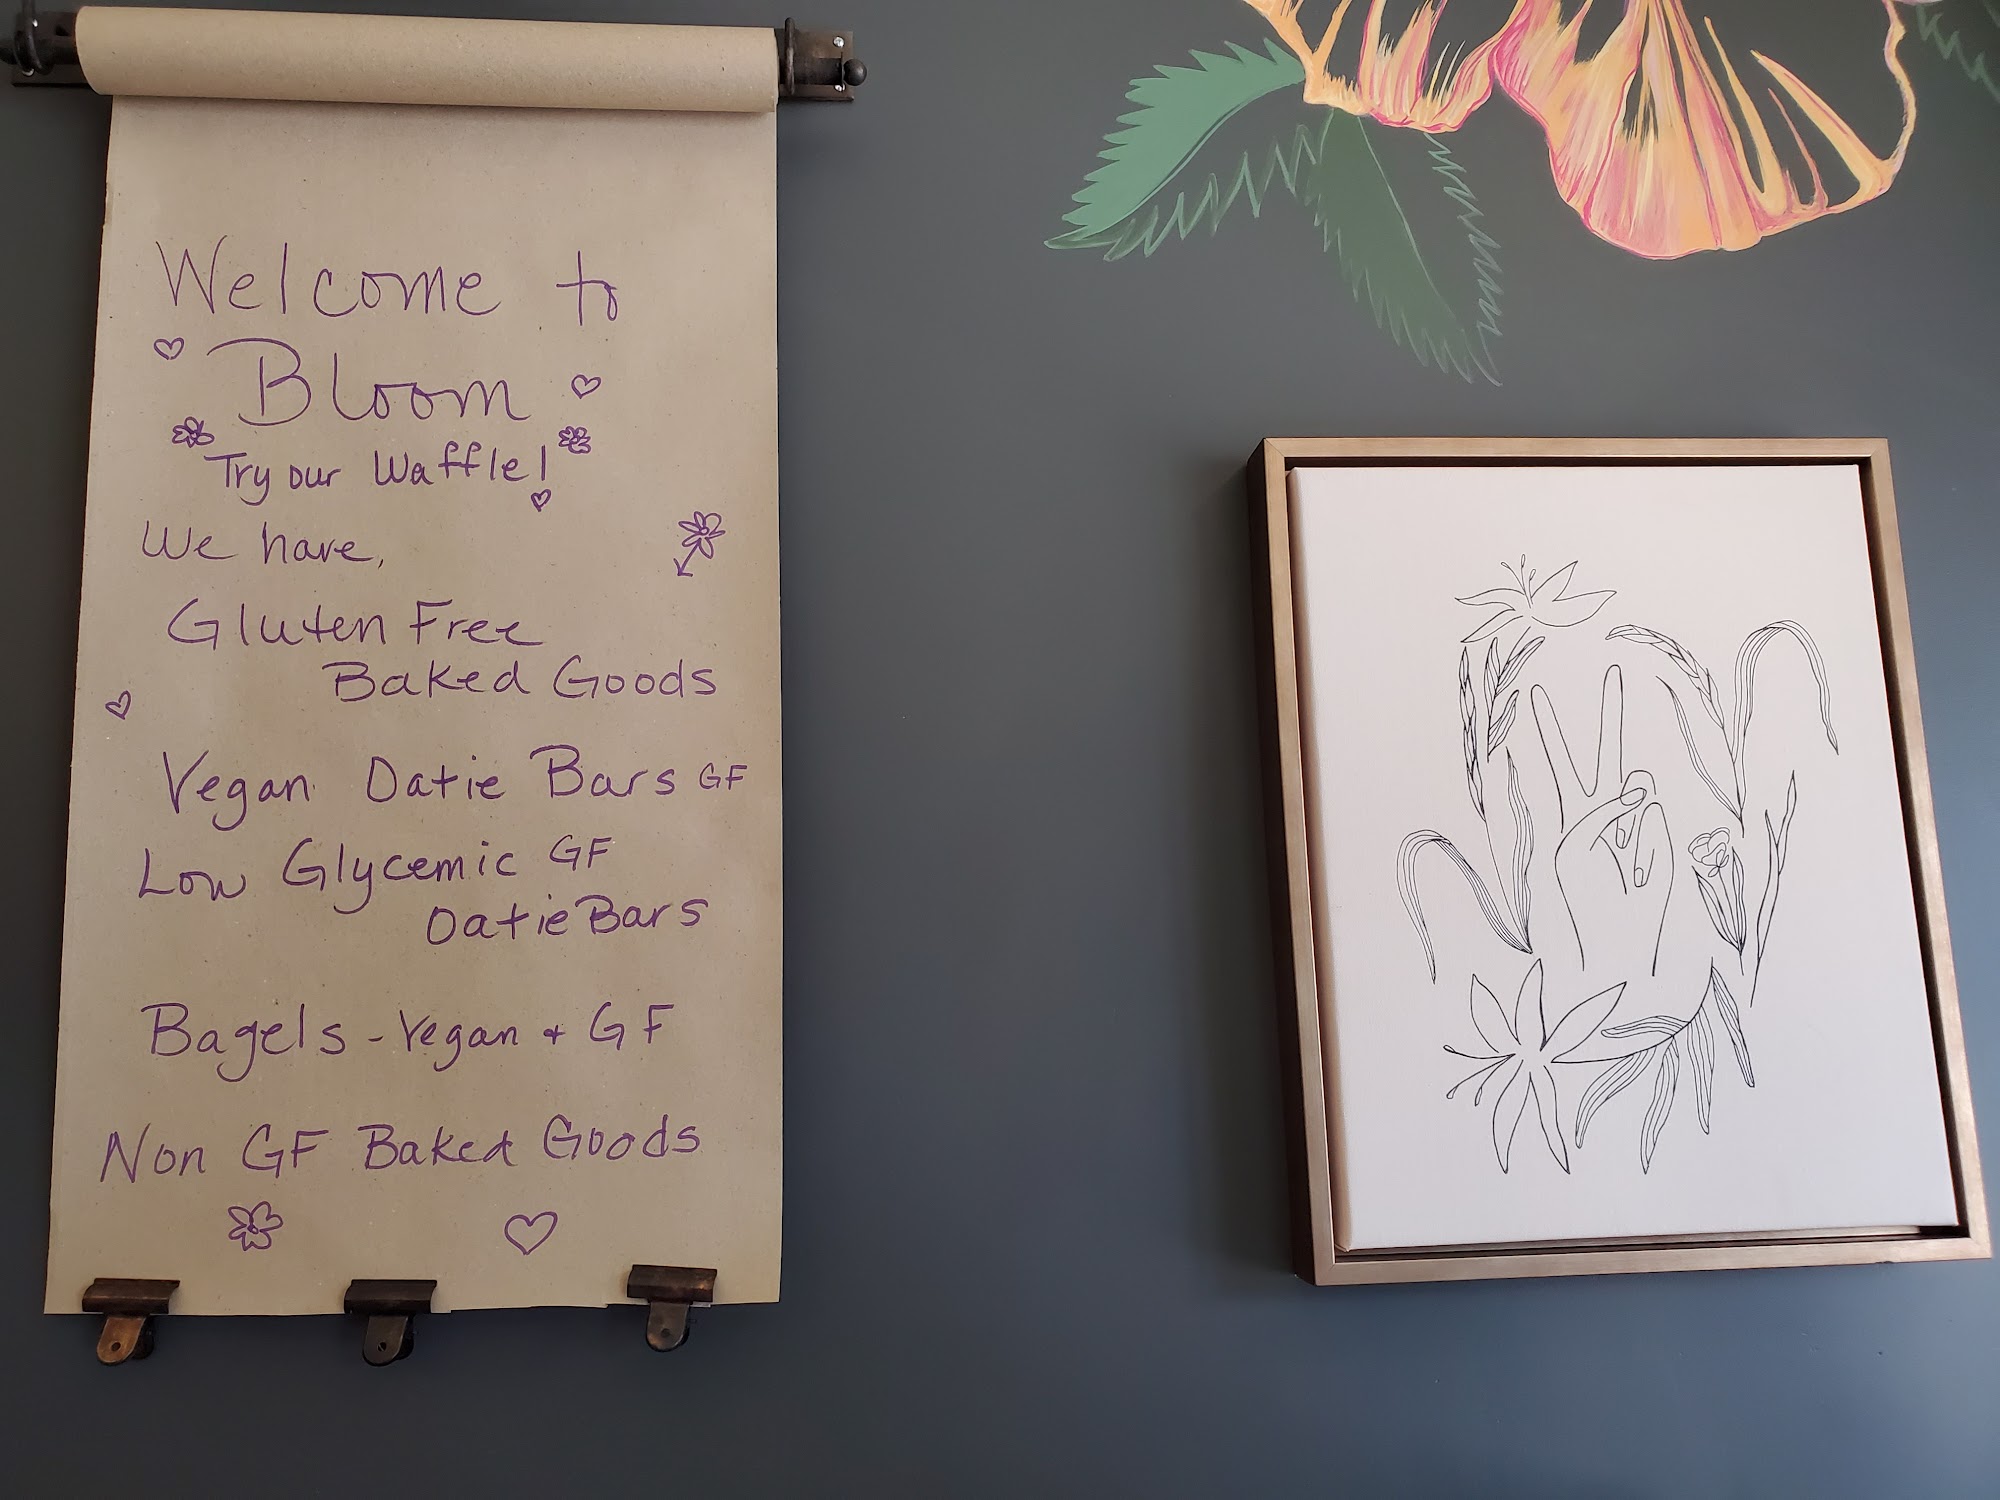 Welcome to
Bloom
Try our Waffle!
We have,
Gluten Free
Baked Goods
Vegan Oatie Bars GF
Low Glycemic GF
Oatie Bars
Bagels - Vegan + GF
Non GF Baked Goods